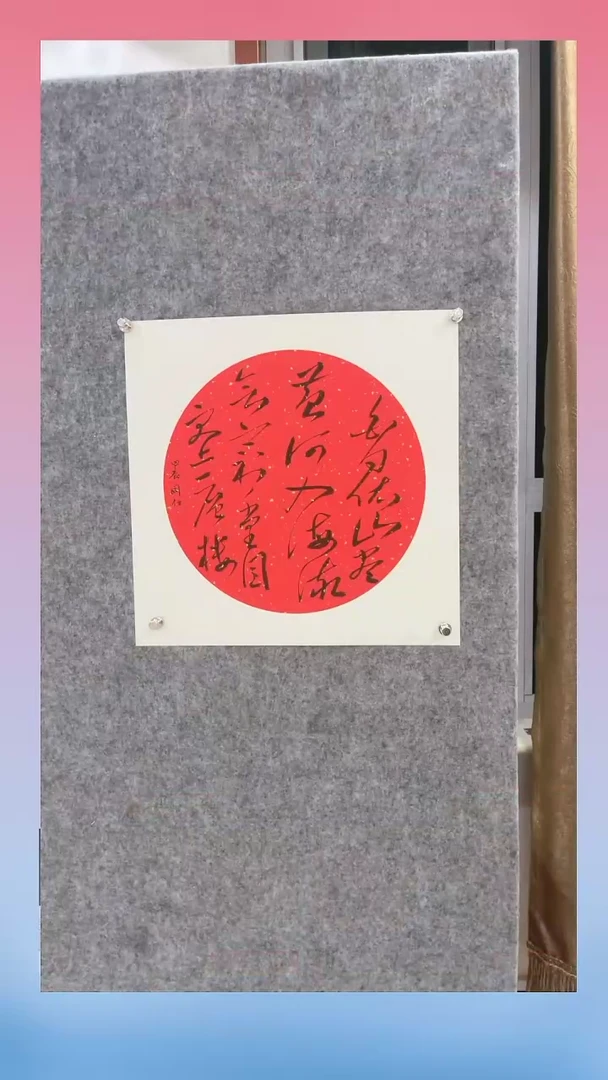 白日依山尽
黄河入海流
欲穷千里目
更上一层楼
甲辰